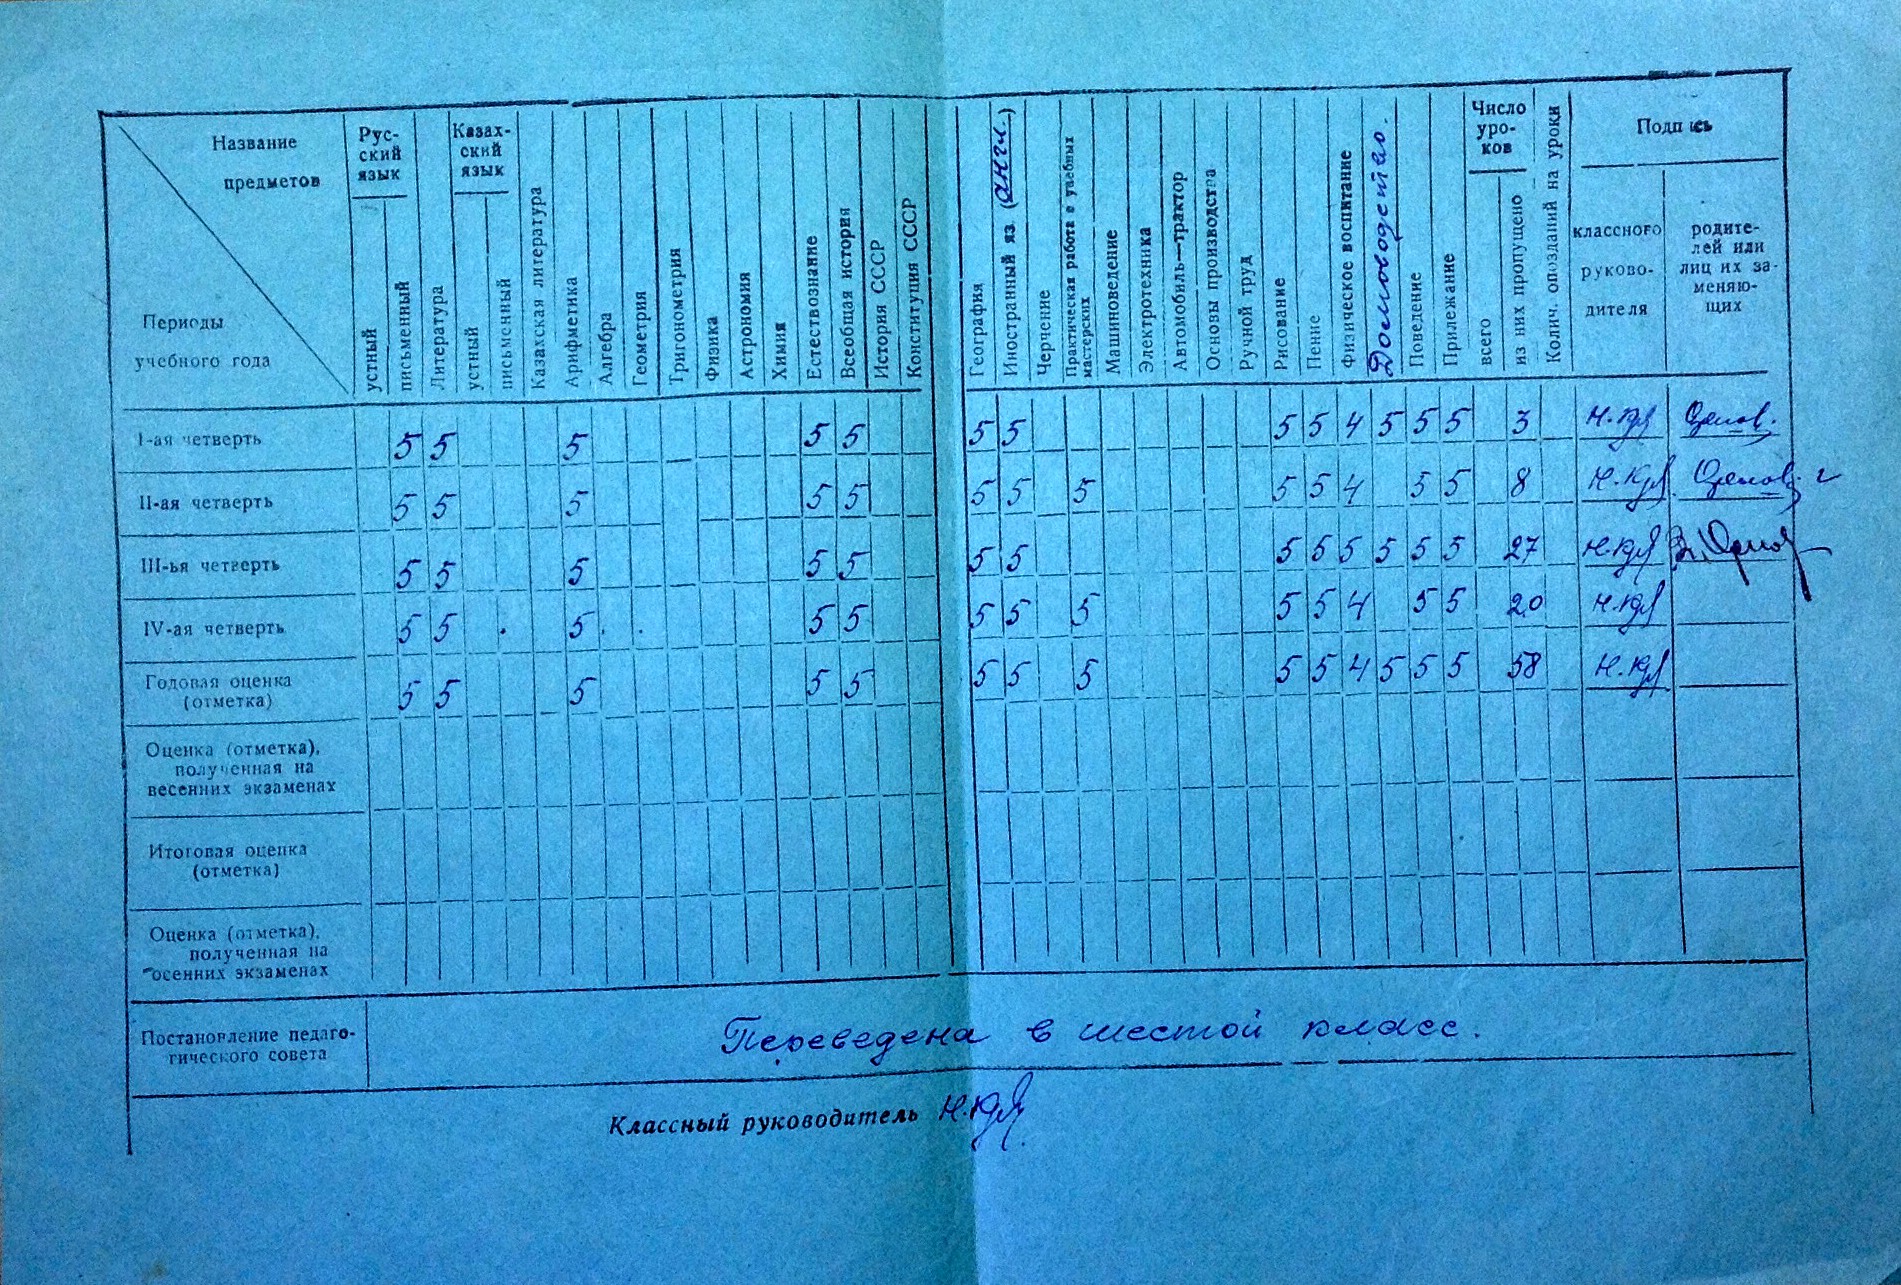 Название предметов
Периоды учебного года
Рус-
ский
язык
устный
письменный
Литература
Казах-
ский
язык
устный
письменный
Казахская литература
Арифметика
Алгебра
Геометрия
Тригонометрия
Физика
Астрономия
Химия
Естествознание
Всеобщая история
История СССР
Конституция СССР
География
Иностранный яз. (англ.)
Черчение
Практическая работа в учебных
мастерских
Машиноведение
Электротехника
Автомобиль—трактор
Основы производства
Ручной труд
Рисование
Пение
Физическое воспитание
Домоводство.
Поведение
Прилежание
Число
уро-
ков
всего
из них пропущено
Колич. опозданий на уроки
Подпись
классного
руково-
дителя
родите-
лей или
лиц их за-
меняю-
щих
I-ая четверть 5 5 5 5 5 5 5 5 5 4 5 5 5 3
II-ая четверть 5 5 5 5 5 5 5 5 5 5 4 5 5 8
III-ья четверть 5 5 5 5 5 5 5 5 5 5 5 5 5 27
IV-ая четверть 5 5 5 5 5 5 5 5 5 5 4 5 5 20
Годовая оценка
(отметка) 5 5 5 5 5 5 5 5 5 5 4 5 5 5 58
Оценка (отметка),
полученная на
весенних экзаменах
Итоговая оценка
(отметка)
Оценка (отметка),
полученная на
осенних экзаменах
Постановление педаго-
гического совета
Переведена в шестой класс.
Классный руководитель